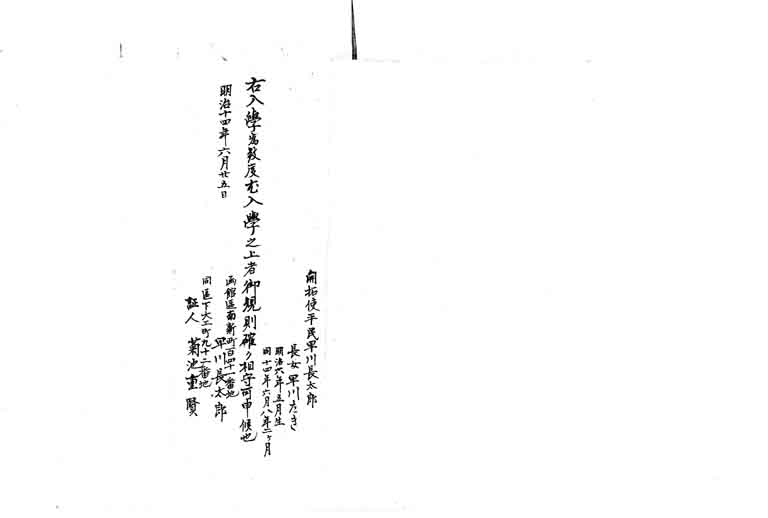 開拓使平民早川長太郎
長女早川たき
明治六年五月生
同十四年六月八年二ヶ月
右入學為致度尤入學之上者御規則確ク相守可申候也
明治十四年六月廿五日
函館區南新町百四十一番地
早川長太郎
同區下大工町九十二番地
証人 菊池重賢